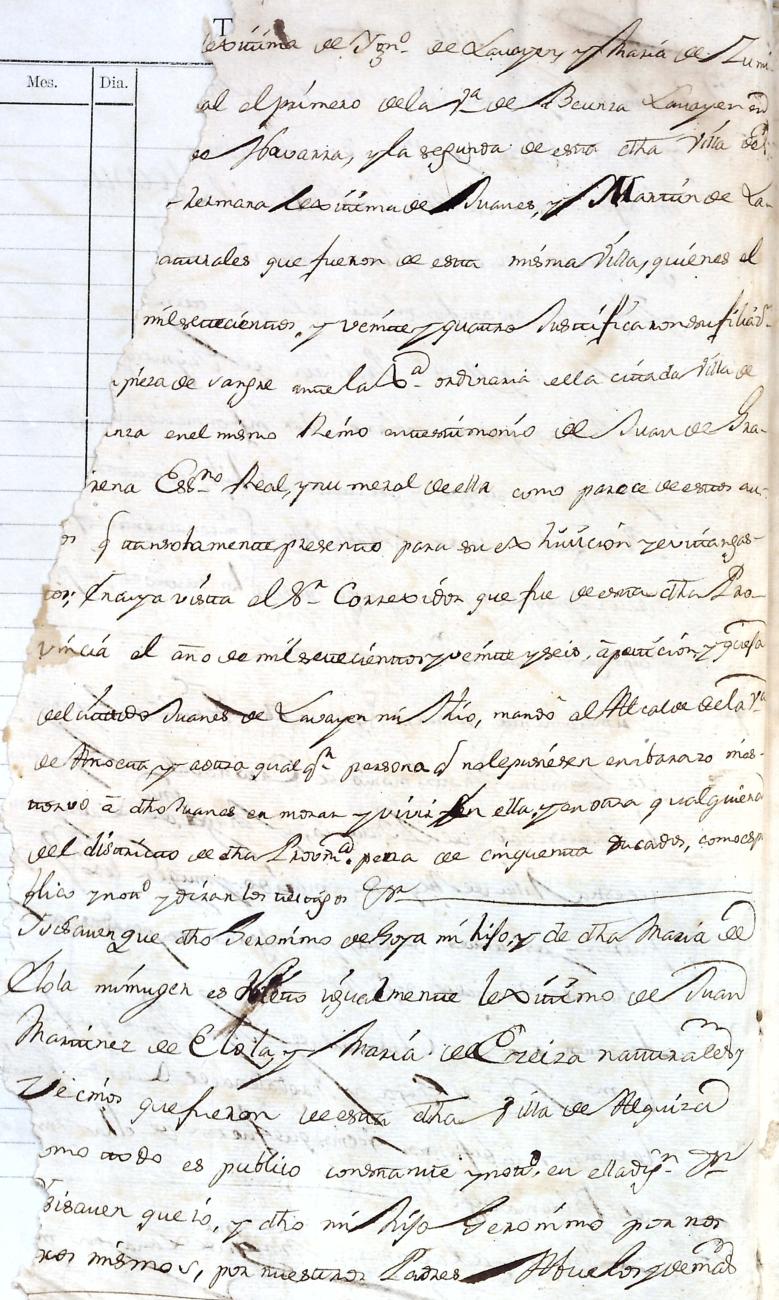 T
Mes. Dia.
lexitima de Igno de Lavayen, y Maria de Zum
al el primero de la Va de Beunza Lavayen en
de Navarra, y la segunda de esta dha Villa de
hermana lexitima de Juanes, y Martin de La-
naturales que fueron de esta misma Villa, quienes el
mil setecientos, y veinte y quatro Justificaron su filiazn
pieza de sangre ante la Xa ordinaria de la cittada Villa de
unza en el mismo Reino en testimonio de Juan de Gra-
rena Essno Real, y numeral de ella como parece de estos au-
os q tan solamente presento para su exhivicion y evitar gas-
tos; En cuya vista el Sr Correxidor que fue de esta dha Pro-
vincia el año de mil setecientos y veinte y seis, a peticion, y
del cittado Juanes de Lavayen mi Thio, mando al Alcalde de la Va
de Anoeta, y a otra qualqr persona q no le pusiesen embarazo
a dho Juanes en morar y vivir en ella, y en otra qualquiera
del districto de dha Provina pena de cinquenta Ducados, como es pu
blico y noto y diran los testigos &a
Y si saven que dho Geronimo de Goya mi hijo, y de dha Maria de
Elola mi muger es Nieto igualmente lexitimo de Juan
Martinez de Elola, y Maria de Ereiza naturales, y
Vecinos que fueron de esta dha Villa de Alquiza
omo todo es publico constante y noto en ella
Y si saven que io, y dho mi hijo Geronimo por nos
ros mismos, por nuestros Padres Abuelos, y demas